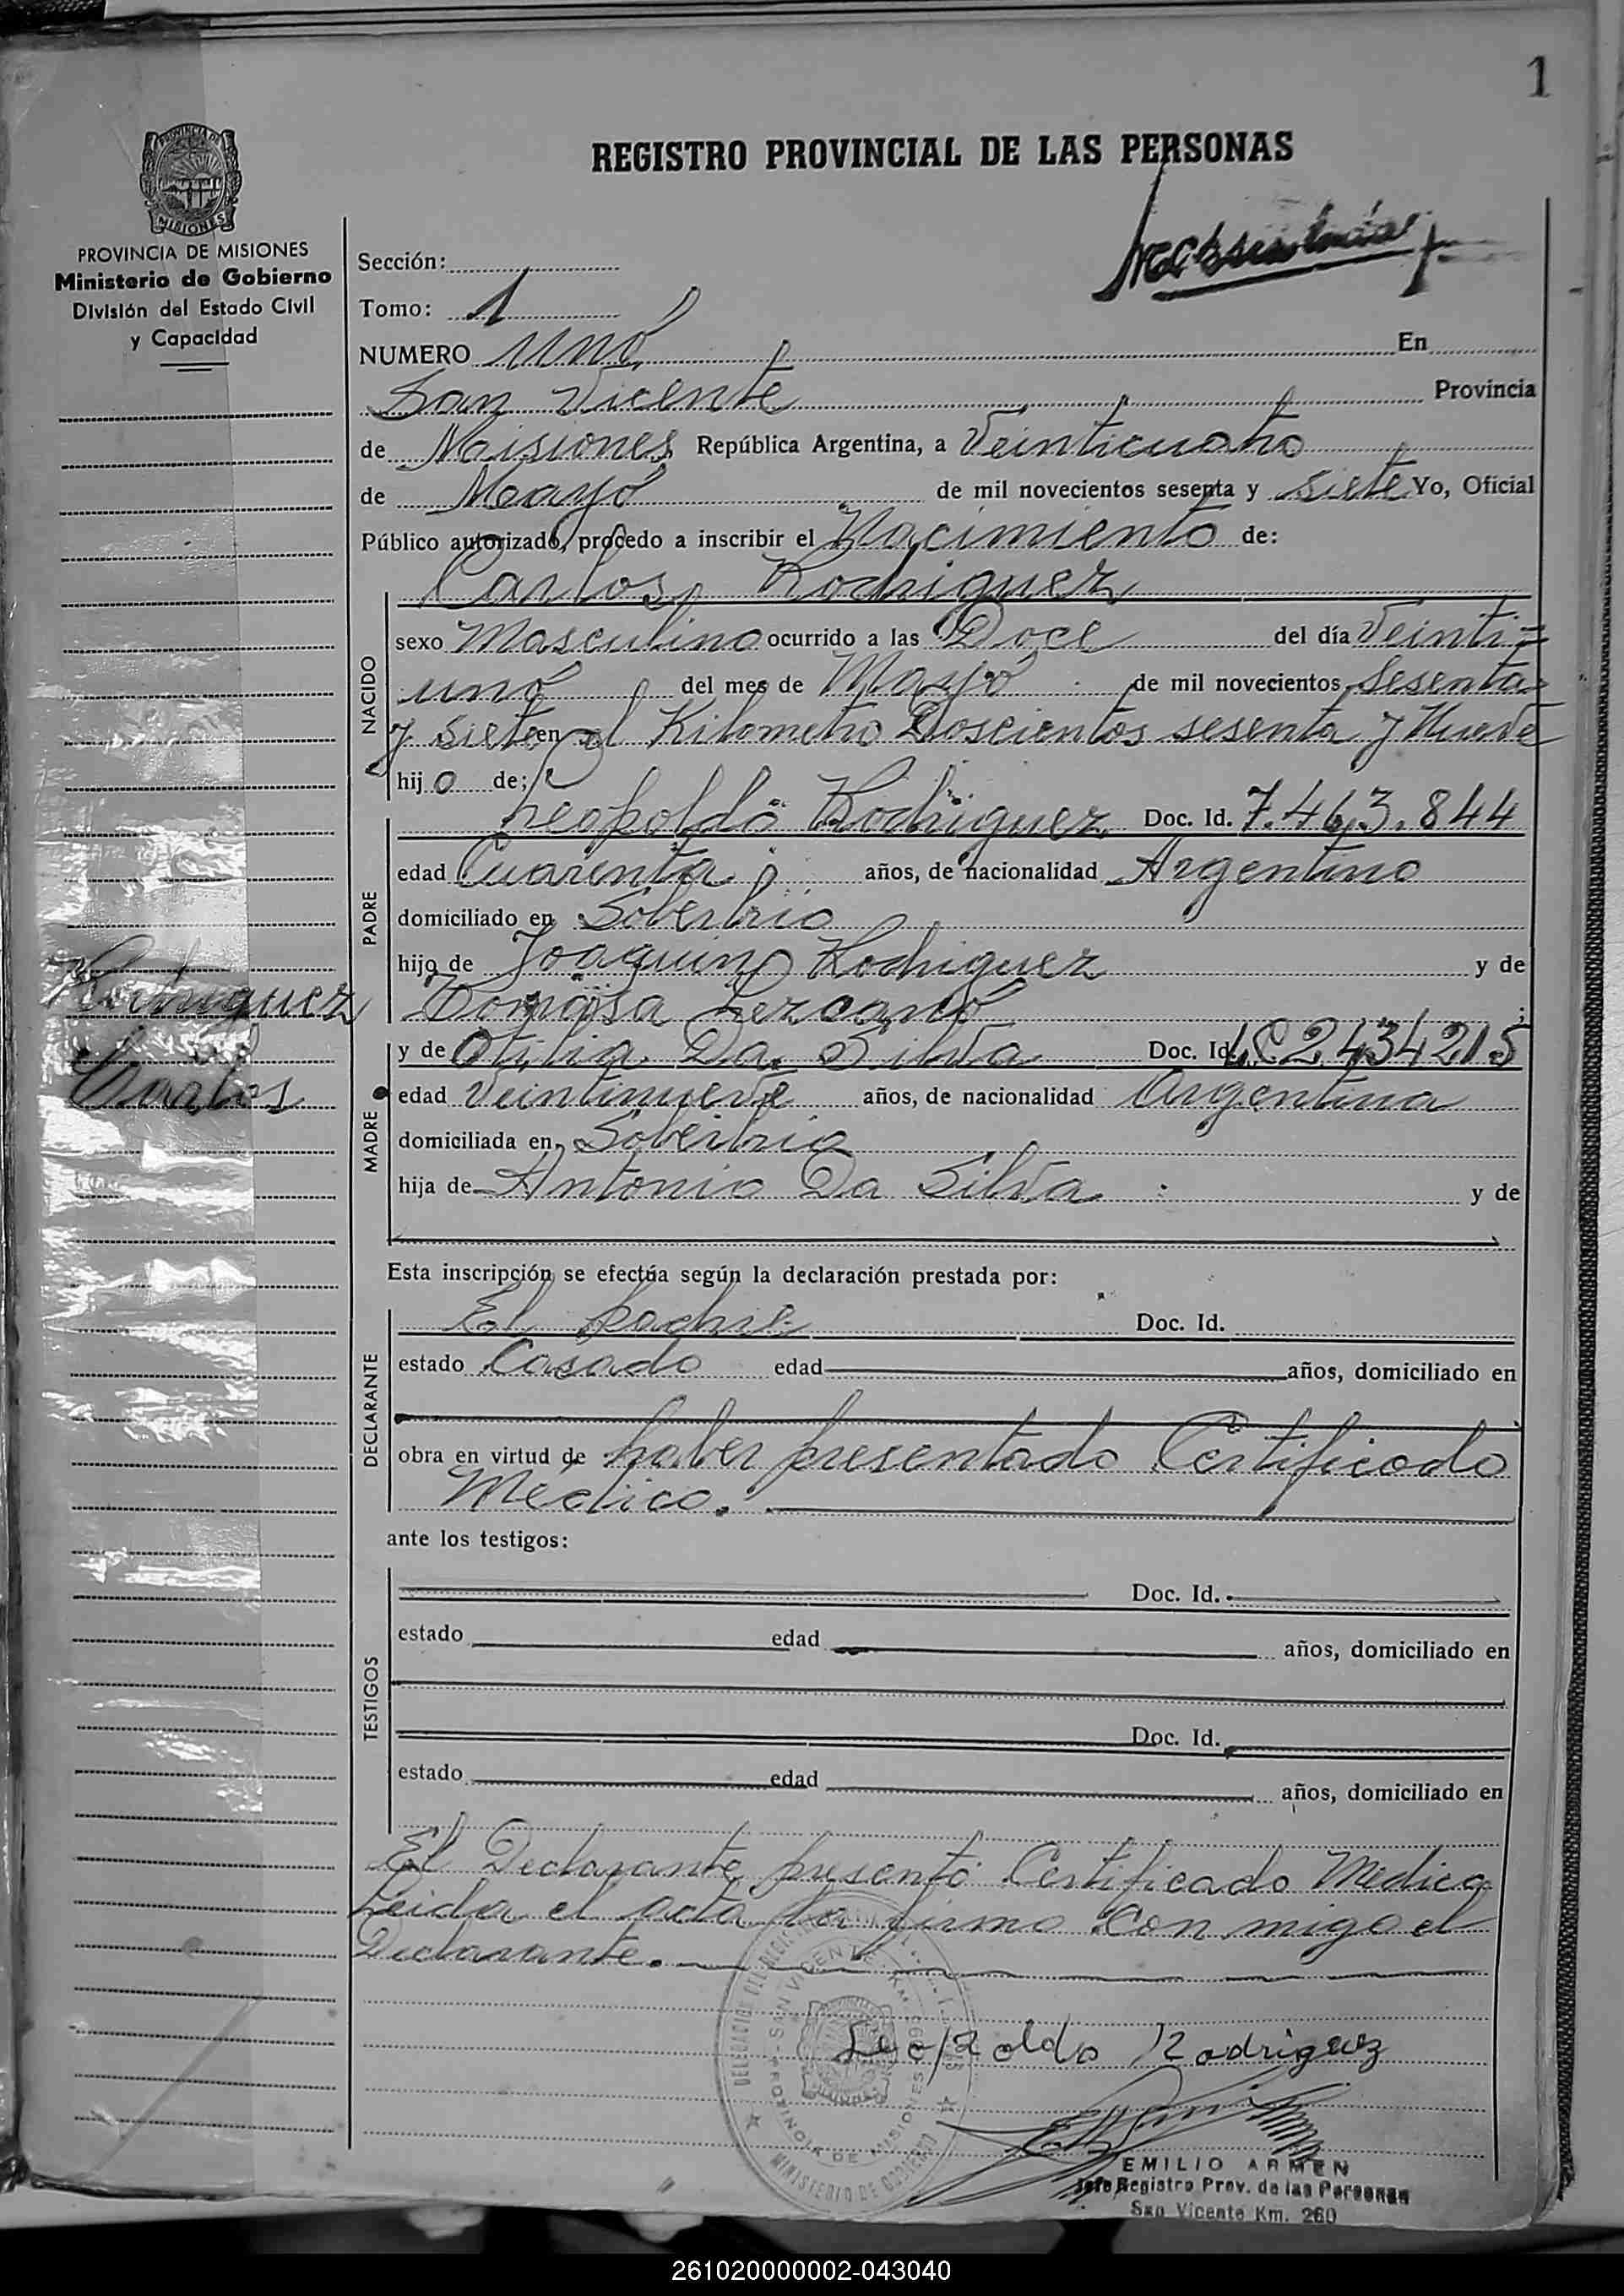 1
REGISTRO PROVINCIAL DE LAS PERSONAS
PROVINCIA DE
MISIONES
PROVINCIA DE MISIONES
Ministerio de Gobierno
División del Estado Civil
y Capacidad
Rodriguez
Carlos
Sección:
Tomo: 1
NUMERO uno En
San Vicente Provincia
de Misiones República Argentina, a Veinticuatro
de Mayo de mil novecientos sesenta y siete Yo, Oficial
Público autorizado, procedo a inscribir el Nacimiento de:
Carlos Rodriguez
NACIDO
sexo Masculino ocurrido a las Doce del día Veinti=
uno del mes de Mayo de mil novecientos Sesenta
y siete en el Kilometro Doscientos sesenta y Nueve
hijo de;
PADRE
Leopoldo Rodriguez Doc. Id. 7.463.844
edad Cuarenta años, de nacionalidad Argentino
domiciliado en Soberbio
hijo de Joaquin Rodriguez y de
Tomasa Lezcano ;
MADRE
y de Otilia Da Silva Doc. Id. LC2434215
edad Veintinueve años, de nacionalidad Argentina
domiciliada en Soberbio
hija de Antonio Da Silva y de
Esta inscripción se efectúa según la declaración prestada por:
DECLARANTE
El padre Doc. Id.
estado Casado edad años, domiciliado en
obra en virtud de haber presentado Certificado
Médico.
ante los testigos:
TESTIGOS
Doc. Id.
estado edad años, domiciliado en
Doc. Id.
estado edad años, domiciliado en
El Declarante presentó Certificado Medico
Leida el acta la firma con migo el
Declarante.
SAN VICENTE
PROVINCIA DE MISIONES
MINISTERIO DE GOBIERNO
Leopoldo Rodriguez
EMILIO ARMEN
Jefe Registro Prov. de las Personas
San Vicente Km. 260
261020000002-043040